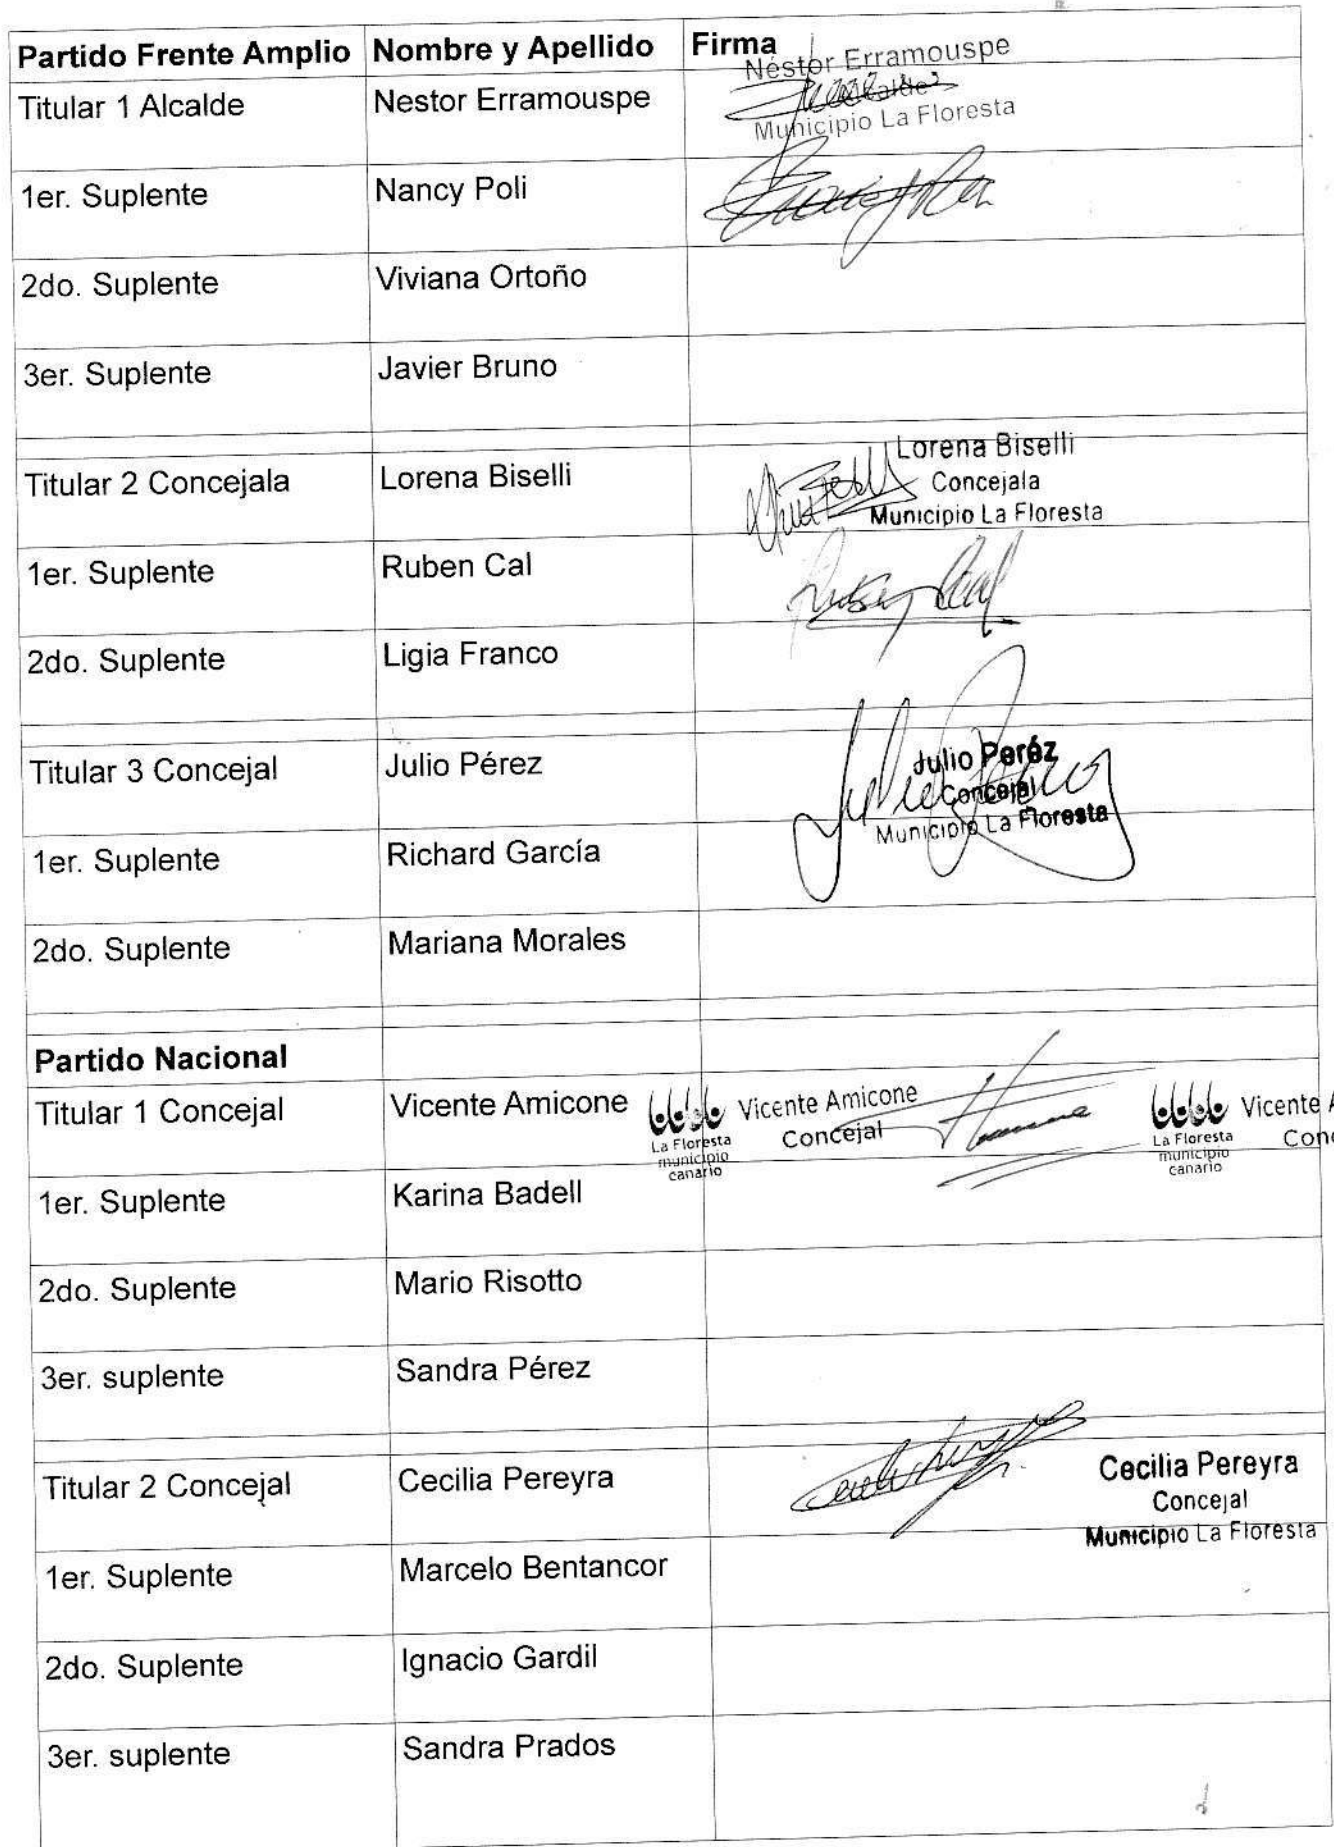 Partido Frente Amplio Nombre y Apellido Firma
Néstor Erramouspe
Titular 1 Alcalde Nestor Erramouspe
Alcalde
Municipio La Floresta
1er. Suplente Nancy Poli
2do. Suplente Viviana Ortoño
3er. Suplente Javier Bruno
Lorena Biselli
Titular 2 Concejala Lorena Biselli Concejala
Municipio La Floresta
1er. Suplente Ruben Cal Ruben Cal
2do. Suplente Ligia Franco
Titular 3 Concejal Julio Pérez Julio Peréz
Concejal
Municipio La Floresta
1er. Suplente Richard García
2do. Suplente Mariana Morales
Partido Nacional
Titular 1 Concejal Vicente Amicone Vicente Amicone Vicente A
Concejal Conc
La Floresta La Floresta
municipio municipio
canario canario
1er. Suplente Karina Badell
2do. Suplente Mario Risotto
3er. suplente Sandra Pérez
Titular 2 Concejal Cecilia Pereyra Cecilia Pereyra
Concejal
Municipio La Floresta
1er. Suplente Marcelo Bentancor
2do. Suplente Ignacio Gardil
3er. suplente Sandra Prados